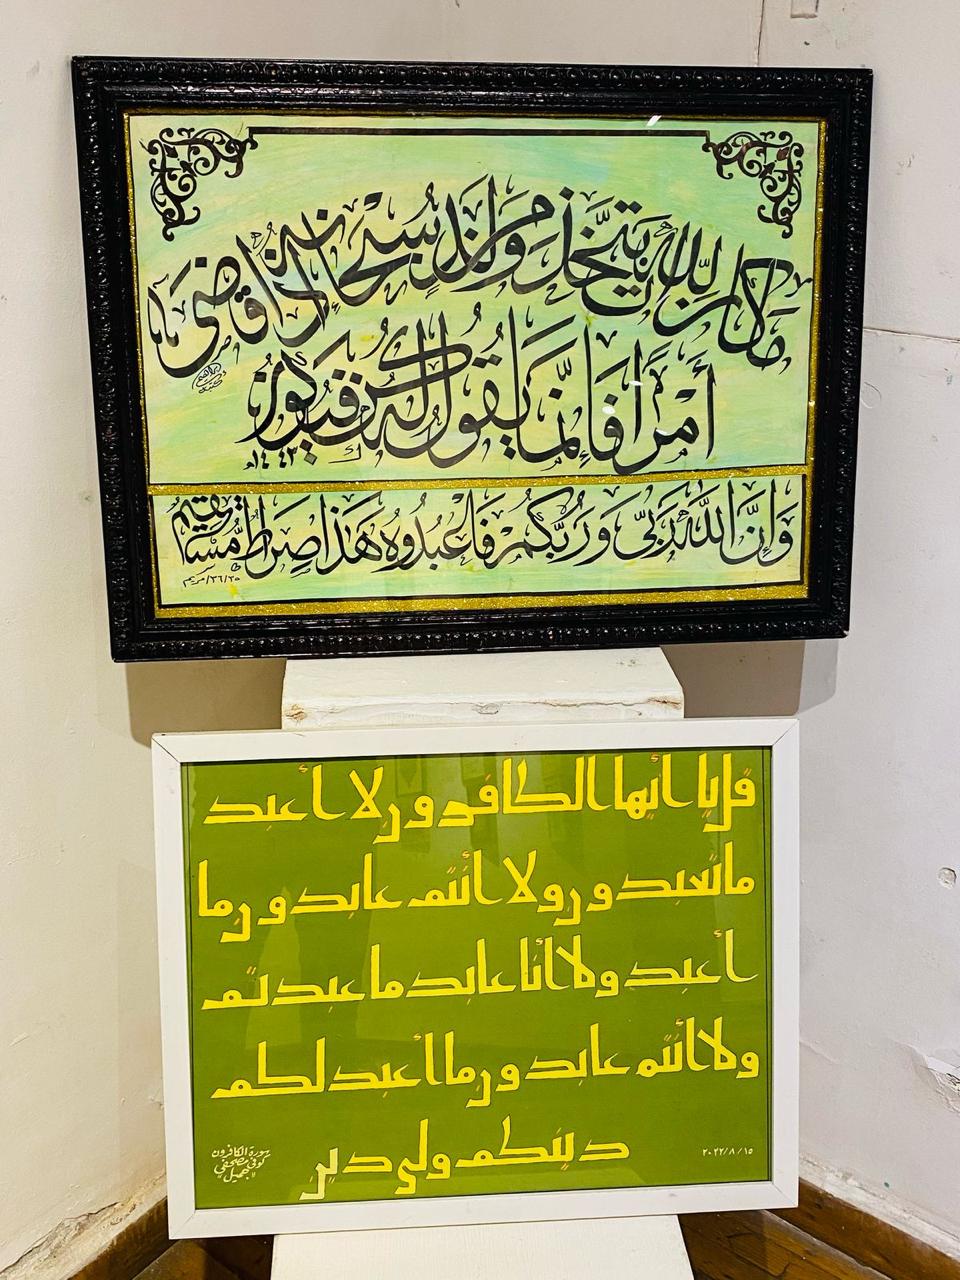 مَا كَانَ لِلَّهِ أَن يَتَّخِذَ مِن وَلَدٍ سُبْحَانَهُ إِذَا قَضَى
أَمْرًا فَإِنَّمَا يَقُولُ لَهُ كُن فَيَكُونُ
١٤٤٣هـ
وَإِنَّ اللَّهَ رَبِّي وَرَبُّكُمْ فَاعْبُدُوهُ هَذَا صِرَاطٌ مُسْتَقِيمٌ
٣٦/٣٥/مريم
قل يا أيها الكافرون لا أعبد
ما تعبدون ولا أنتم عابدون ما
أعبد ولا أنا عابد ما عبدتم
ولا أنتم عابدون ما أعبد لكم
دينكم ولي دين
سورة الكافرون
كوفي مصحفي
جميل
٢٠٢٢/٨/١٥